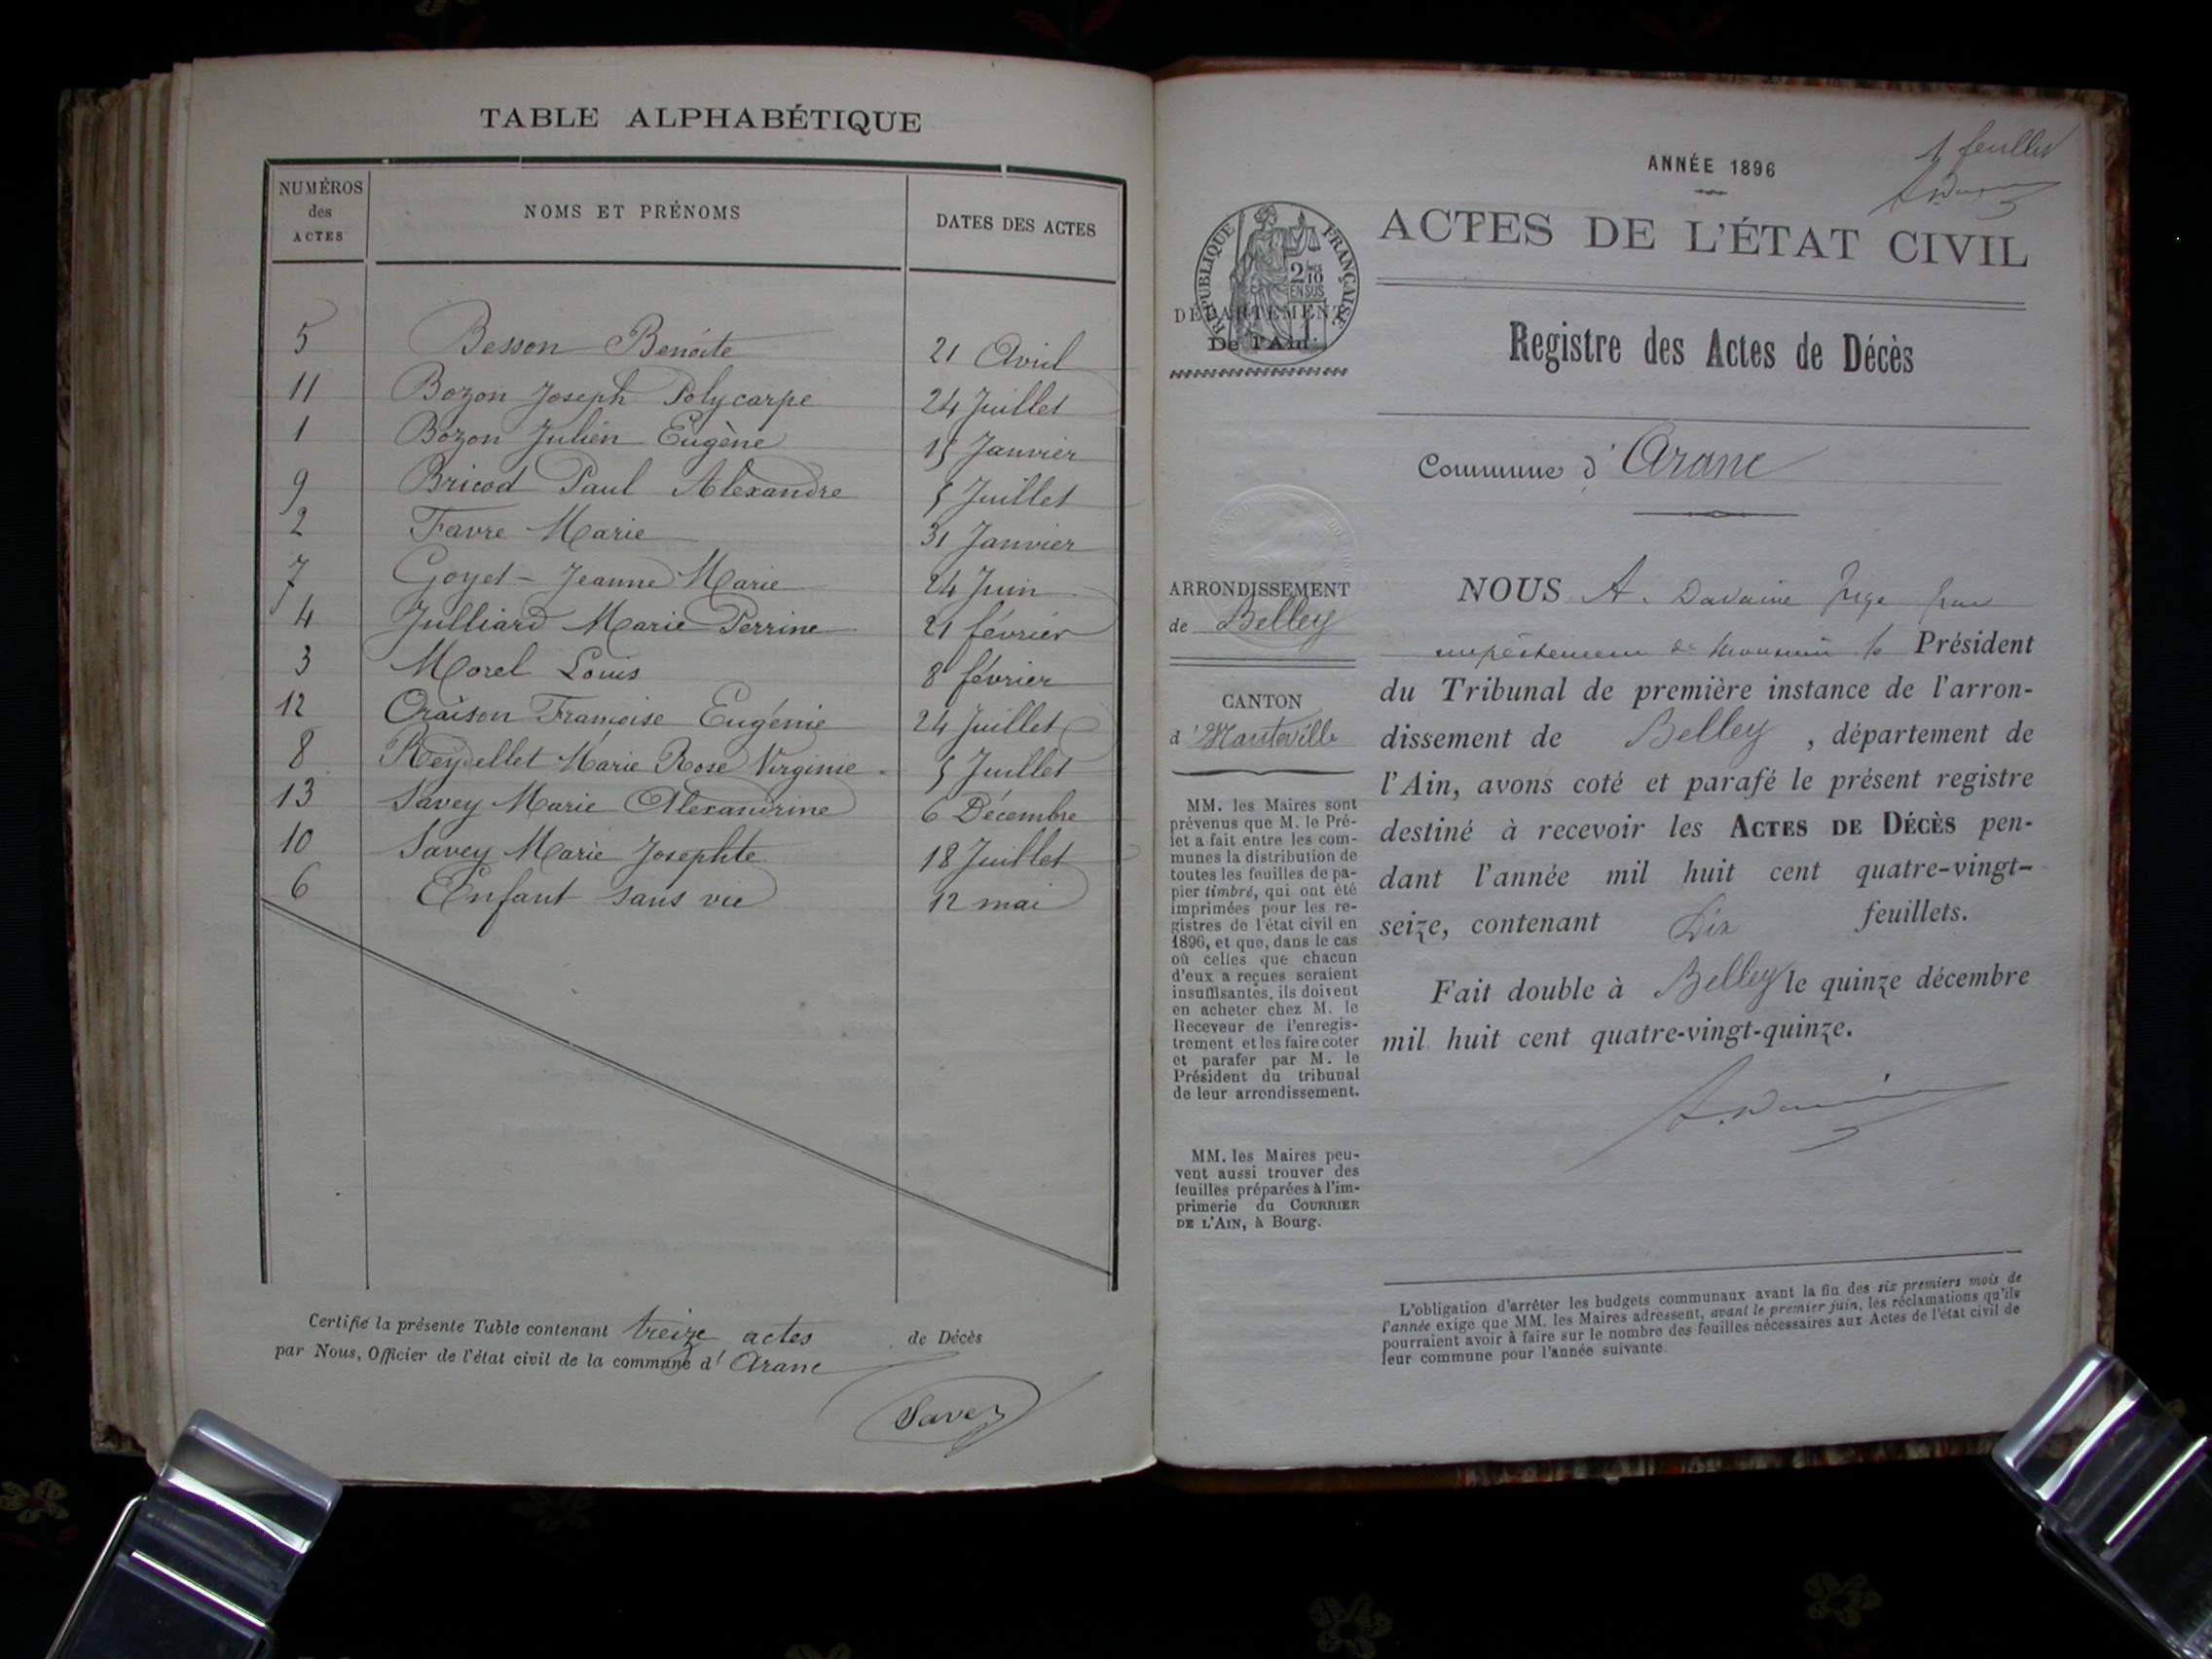 TABLE ALPHABÉTIQUE
NUMÉROS des ACTES
NOMS ET PRÉNOMS
DATES DES ACTES
5 Besson Benoîte 21 Avril
11 Bozon Joseph Polycarpe 24 Juillet
1 Bozon Julien Eugène 15 Janvier
9 Bricod Paul Alexandre 5 Juillet
2 Favre Marie 31 Janvier
7 Goyet Jeanne Marie 24 Juin
4 Julliard Marie Perrine 21 février
3 Morel Louis 8 février
12 Oraison Françoise Eugénie 24 Juillet
8 Reydellet Marie Rose Virginie 5 Juillet
13 Savey Marie Alexandrine 6 Décembre
10 Savey Marie Josephte 18 Juillet
6 Enfant sans vie 12 mai
Certifié la présente Table contenant treize actes de Décès
par Nous, Officier de l'état civil de la commune d' Aranc
Savey
1 feuillet
ANNÉE 1896
ACTES DE L'ÉTAT CIVIL
RÉPUBLIQUE FRANÇAISE
2/10 EN SUS
DÉPARTEMENT
De l'Ain.
Registre des Actes de Décès
Commune d' Aranc
ARRONDISSEMENT
de Belley
CANTON
d' Hauteville
MM. les Maires sont
prévenus que M. le Pré-
fet a fait entre les com-
munes la distribution de
toutes les feuilles de pa-
pier timbré, qui ont été
imprimées pour les re-
gistres de l'état civil en
1896, et que, dans le cas
où celles que chacun
d'eux a reçues seraient
insuffisantes, ils doivent
en acheter chez M. le
Receveur de l'enregis-
trement et les faire coter
et parafer par M. le
Président du tribunal
de leur arrondissement.
MM. les Maires peu-
vent aussi trouver des
feuilles préparées à l'im-
primerie du COURRIER
DE L'AIN, à Bourg.
NOUS A. Davaine Juge pour
empêchement de Monsieur le Président
du Tribunal de première instance de l'arron-
dissement de Belley, département de
l'Ain, avons coté et parafé le présent registre
destiné à recevoir les ACTES DE DÉCÈS pen-
dant l'année mil huit cent quatre-vingt-
seize, contenant Dix feuillets.
Fait double à Belley le quinze décembre
mil huit cent quatre-vingt-quinze.
L'obligation d'arrêter les budgets communaux avant la fin des six premiers mois de
l'année exige que MM. les Maires adressent, avant le premier juin, les réclamations qu'ils
pourraient avoir à faire sur le nombre des feuilles nécessaires aux Actes de l'état civil de
leur commune pour l'année suivante.